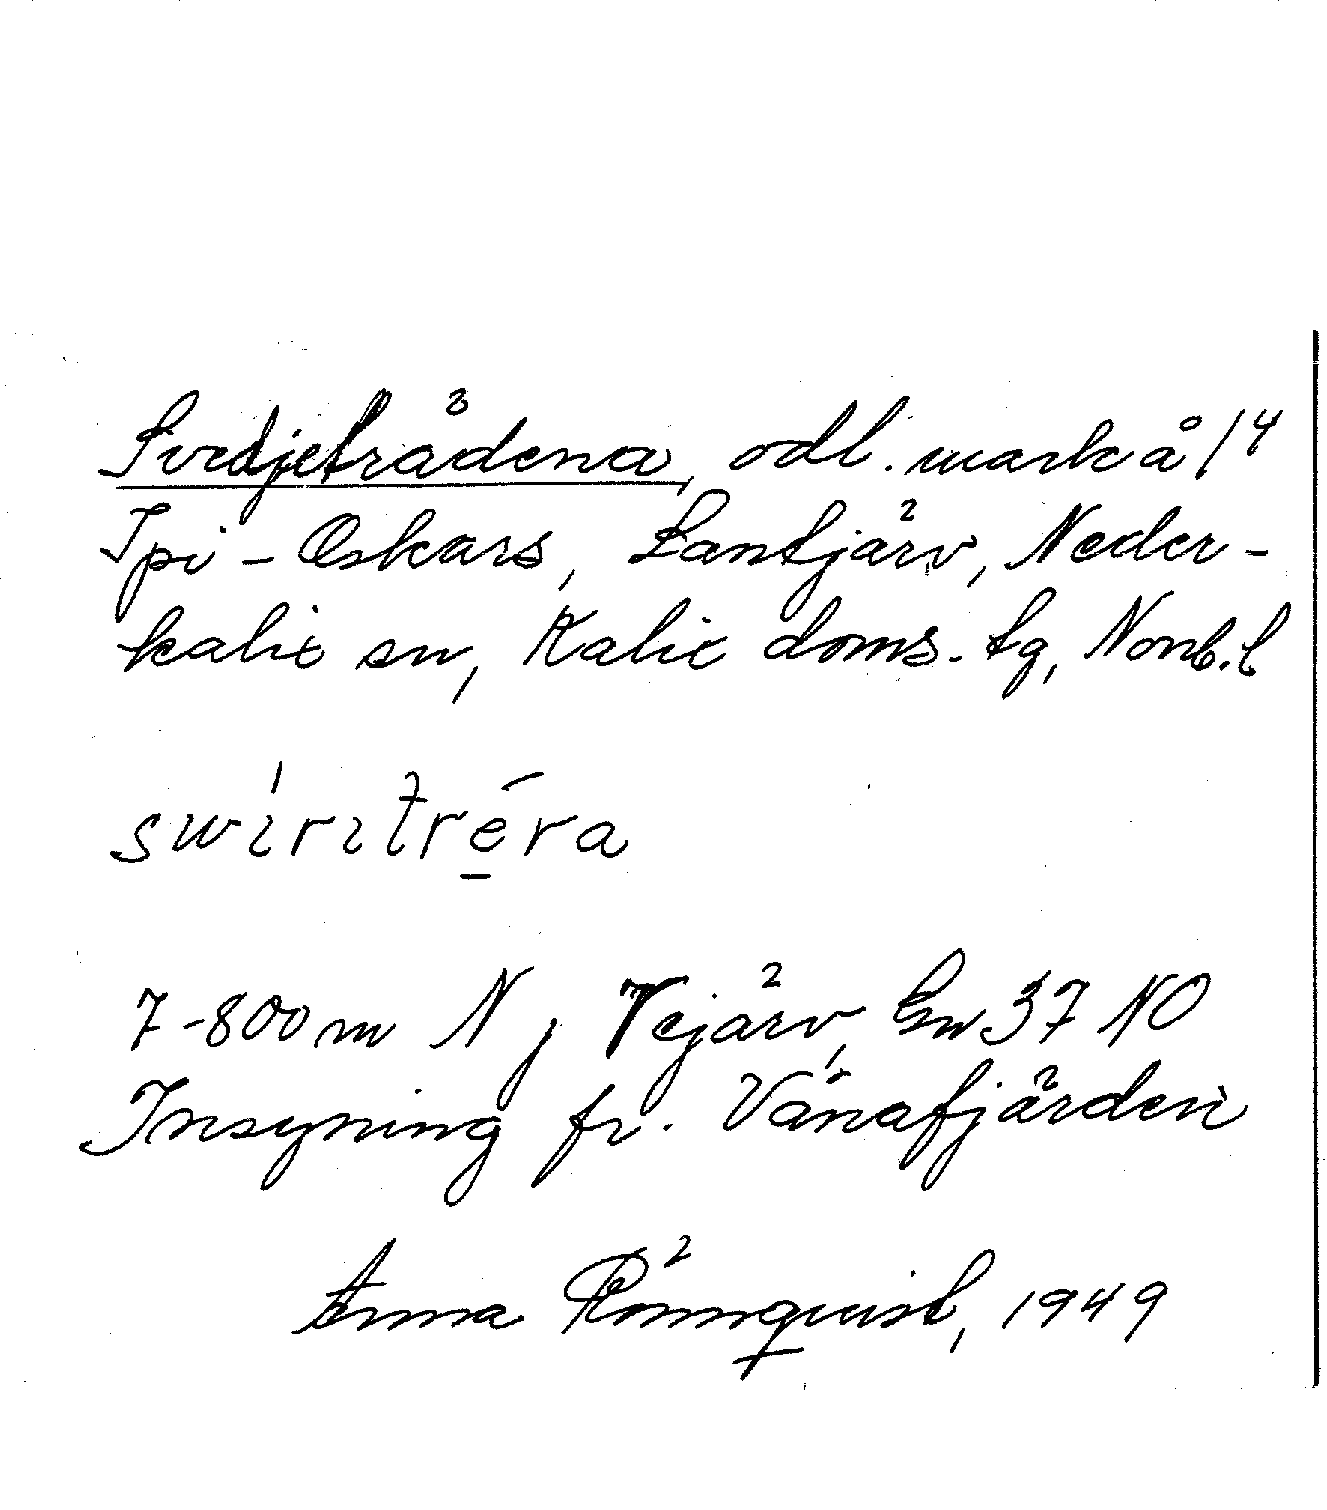 Svedjetrådena, odl. mark å 1/4
Ipi-Oskars, Lantjärv, Neder-
kalix sn, Kalix doms. tg, Norrb.l
swirıtréra
7-800m N j Vejärv, Gn 37 NO
Insyning fr. Vånafjärden
Anna Rönnquist, 1949